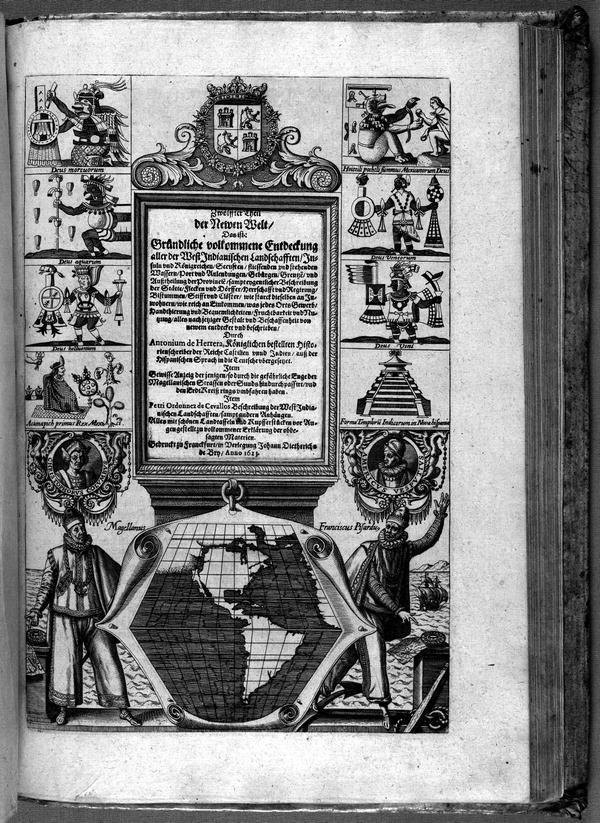 Deus mortuorum
Deus aquarum
Deus bellorum
Zwölffter Theil
der Newen Welt/
Das ist:
Gründliche volkommene Entdeckung
aller der West Indianischen Landschafften/ In-
suln vnd Königreichen/ Seecusten/ fliessenden vnd stehenden
Wassern/ Port vnd Anlendungen/ Gebürgen/ Grentzē/ vnd
Außtheilung der Provincē/ sampt eygentlicher Beschreibung
der Städte/ Flecken vnd Dörffer/ Herrschafft vnd Regirung/
Bistummen/ Stifft vnd Clöster/ wie starck dieselben an In-
wohnern/ wie reich an Einkommen/ was jedes Orts Gewerb/
Handthierung vnd Bequemlichkeiten/ Fruchtbarkeit vnd Nu-
tzung/ alles nach jetziger Gestalt vnd Beschaffenheit von
newem entdecket vnd beschrieben/
Durch
Antonium de Herrera, Königlichen bestellten Histo-
rienschreiber der Reiche Castilien vnnd Indien/ auß der
Hispanischen Sprach in die Teutsche vbergesetzet.
Item
Gewisse Anzeig der jenigen/ so durch die gefährliche Enge der
Magellanischen Strassen oder Sunds hindurch passirt/ vnd
den Erdt Kreiß rings vmbfahren haben.
Item
Petri Ordonnez de Cevallos Beschreibung der West India-
nischen Landschafften/ sampt andern Anhängen.
Alles mit schönen Landtaffeln vnd Kupfferstücken vor Au-
gen gestellt zu volkommener Erklärung der obbe-
sagten Materien.
Gedruckt zu Franckfurt/ in Verlegung Johann Dietherich
de Bry/ Anno 1623.
summus Mexicanorum Deus
Deus Ventorum
Deus Vini
Acamapich primus Rex Mexi
Forma Templorū Indicarum in Nova hispania
Magellanus
Franciscus Pisardus